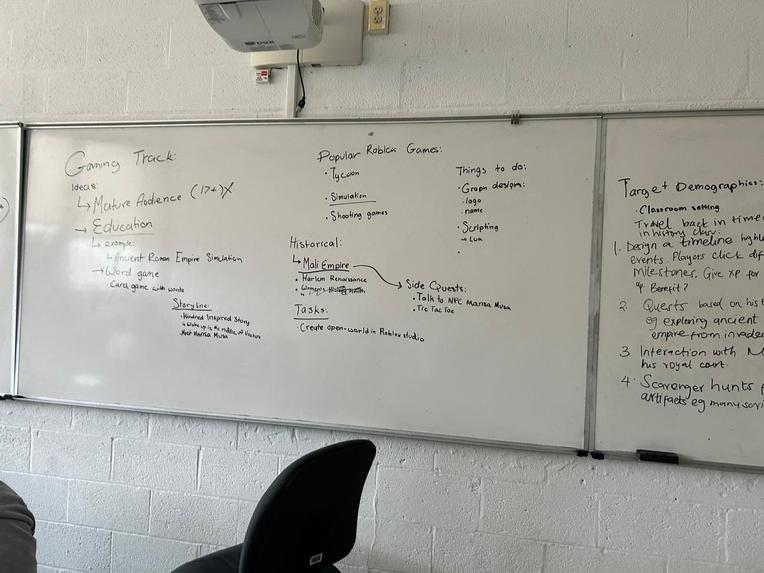 EPSON
Gaming Track:
Ideas:
↳ Mature Audience (17+) X
→ Education
↳ example:
↳ Ancient Roman Empire Simulation
→ Word game
· Card game with words
Storyline:
· Kindred Inspired Story
↳ Wake up in the middle of
· Meet Mansa Musa
Popular Roblox Games:
· Tycoon
· Simulation
· Shooting games
Historical:
↳ Mali Empire
· Harlem Renaissance
Tasks:
· Create open-world in Roblox studio
Side Quests:
· Talk to NPC Mansa Musa
· Tic Tac Toe
Things to do:
· Graph design:
· logo
· name
· Scripting
→ Lua
Target Demographics:
· Classroom setting
Travel back in time
in history class.
1. Design a timeline
events. Players click
Milestones. Give XP for
Benefit?
2. Quests based on
eg exploring ancient
empire from
3 Interaction with
his royal court.
4. Scavenger hunts
artifacts eg